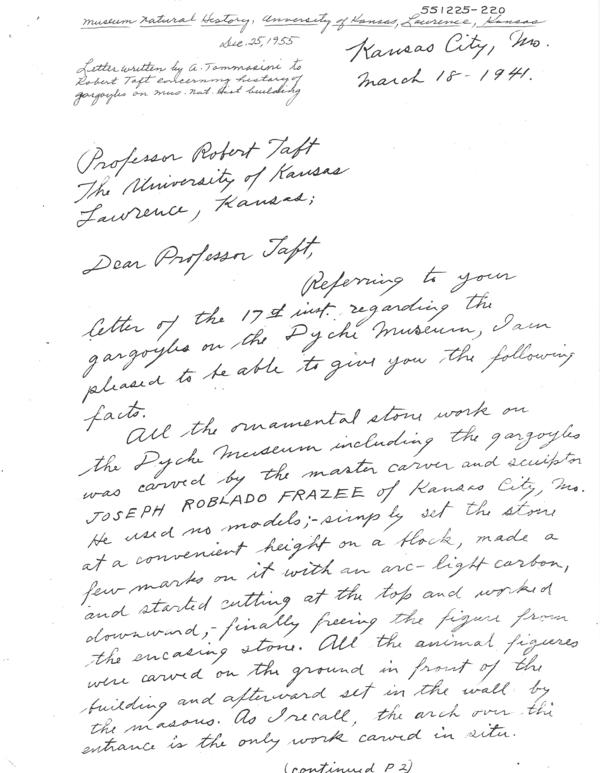 551225-220
Museum Natural History, University of Kansas, Lawrence, Kansas
Dec. 25, 1955
Letter written by A. Tommasini to
Robert Taft concerning history of
gargoyles on mus. nat. hist building
Kansas City, Mo.
March 18-1941.
Professor Robert Taft
The University of Kansas
Lawrence, Kansas;
Dear Professor Taft,
Referring to your
letter of the 17st inst. regarding the
gargoyles on the Dyche Museum, I am
pleased to be able to give you the following
facts.
All the ornamental stone work on
the Dyche Museum including the gargoyles
was carved by the master carver and sculptor
JOSEPH ROBLADO FRAZEE of Kansas City, Mo.
He used no models;- simply set the stone
at a convenient height on a block, made a
few marks on it with an arc-light carbon,
and started cutting at the top and worked
downward,- finally freeing the figure from
the encasing stone. All the animal figures
were carved on the ground in front of the
building and afterward set in the wall by
the masons. As I recall, the arch over the
entrance is the only work carved in situ.
(continued P 2)